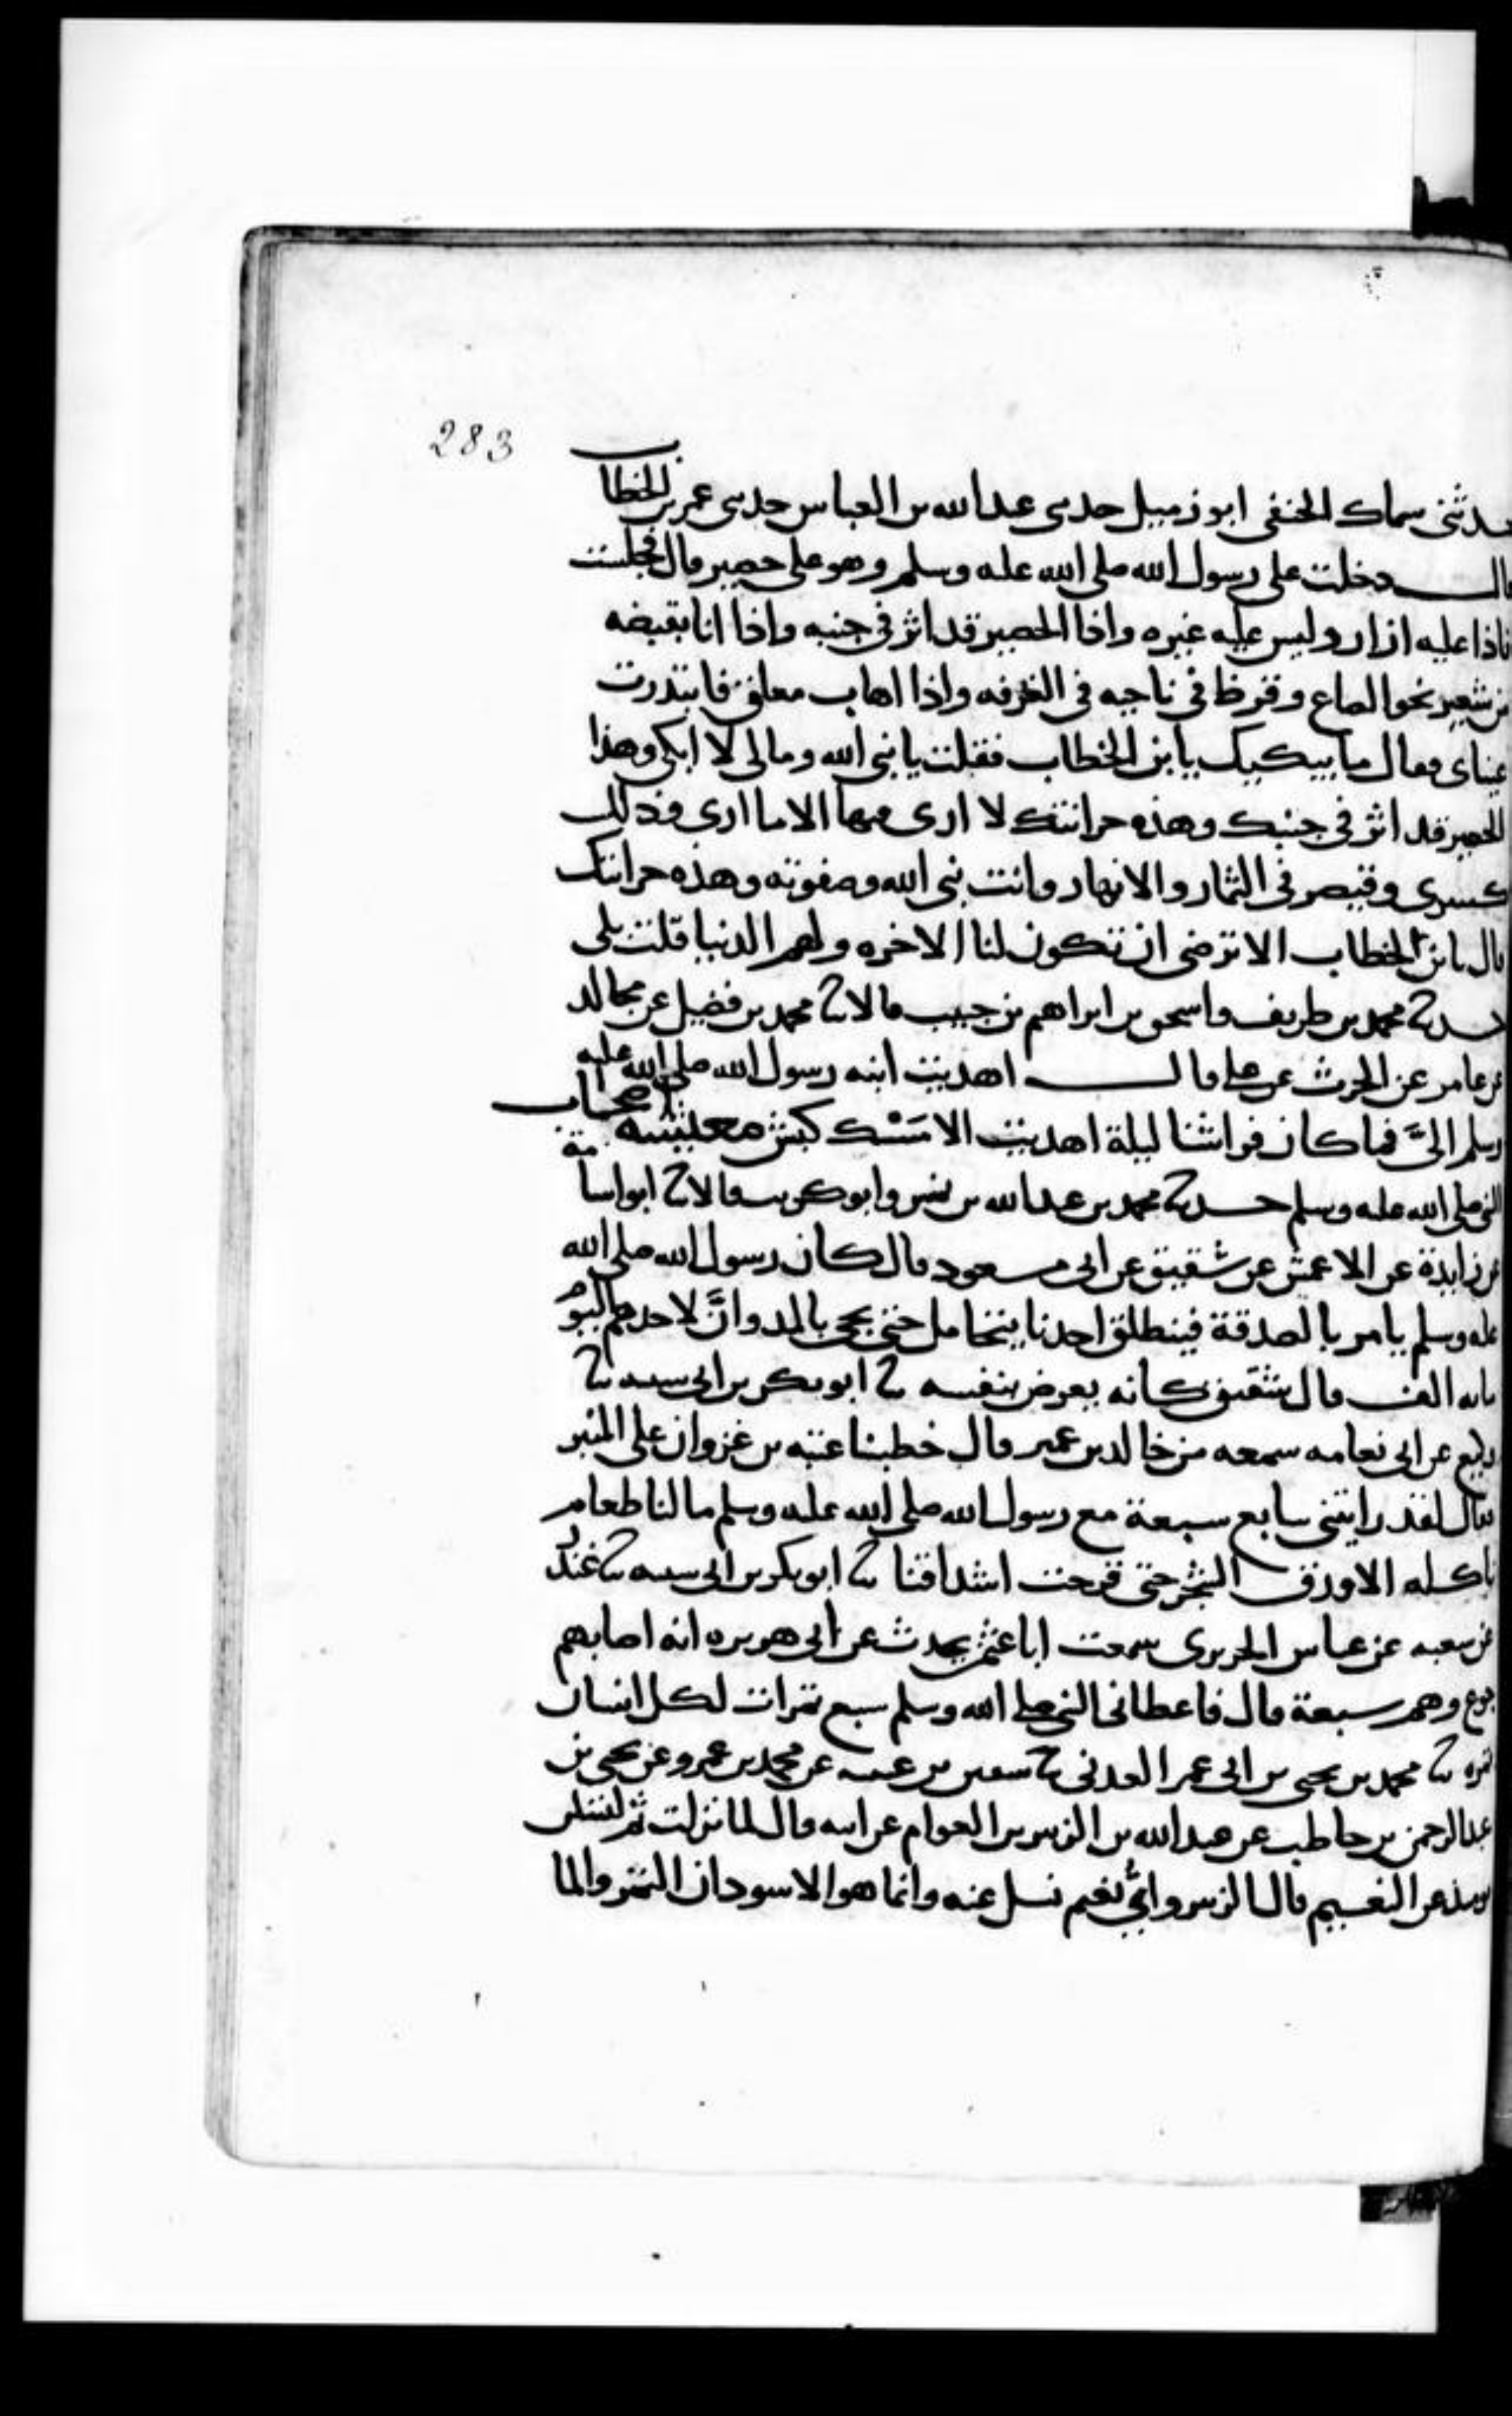 283
حدثنى سماك الحنفى ابو زميل حدثنى عبدالله بن العباس حدثنى عمر بن الخطاب
قال دخلت على رسول الله صلى الله عليه وسلم وهو على حصير قال فجلست
فاذا عليه ازار وليس عليه غيره واذا الحصير قد اثر فى جنبه واذا انا بقبضه
من شعير نحو الصاع وقرظ فى ناحيه فى الغرفه واذا اهاب معلق فابتدرت
عيناى فقال ما يبكيك يا بن الخطاب فقلت يا نبى الله ومالى لا ابكى وهذا
الحصير قد اثر فى جنبك وهذه خزانتك لا ارى فيها الا ما ارى وذلك
كسرى وقيصر فى الثمار والانهار وانت نبى الله وصفوته وهذه خزانتك
قال يا بن الخطاب الا ترضى ان تكون لنا الاخره ولهم الدنيا قلت بلى
حدثنا محمد بن طريف واسحق بن ابراهيم بن حبيب قالا ثنا محمد بن فضيل عن مجالد
عن عامر عن الحرث عن على قال اهديت ابنه رسول الله صلى الله عليه
وسلم الىَّ فما كان فراشنا ليلة اهديت الا مَسْك كبش معيشه اصحاب
النبى صلى الله عليه وسلم حدثنا محمد بن عبدالله بن نمير وابو كريب قالا ثنا ابو اسامة
عن زايدة عن الاعمش عن شقيق عن ابى مسعود قال كان رسول الله صلى الله
عليه وسلم يامر بالصدقة فينطلق احدنا يتحامل حتى يجى بالمد وانَّ لاحدهم اليوم
مايه الف قال شقيق كانه يعرض بنفسه ثنا ابو بكر بن ابى شيبه ثنا
وكيع عن ابى نعامه سمعه من خالد بن عمير قال خطبنا عتبه بن غزوان على المنبر
فقال لقد رايتنى سابع سبعة مع رسول الله صلى الله عليه وسلم ما لنا طعام
ناكله الا ورق الشجر حتى قرحت اشداقنا ثنا ابو بكر بن ابى شيبه ثنا غندر
عن شعبه عن عباس الجريرى سمعت ابا عثمن يحدث عن ابى هريره انه اصابهم
جوع وهم سبعة قال فاعطانى النبى صلى الله وسلم سبع تمرات لكل انسان
تمره ثنا محمد بن يحيى بن ابى عمر العدنى ثنا سفين بن عيينه عن محمد بن عمرو عن يحيى بن
عبدالرحمن بن حاطب عن عبدالله بن الزبير بن العوام عن ابيه قال لما نزلت ثم لتسئلن
يومئذ عن النعيم قال الزبير واىّ نعيم نسل عنه وانما هو الاسودان التمر والما